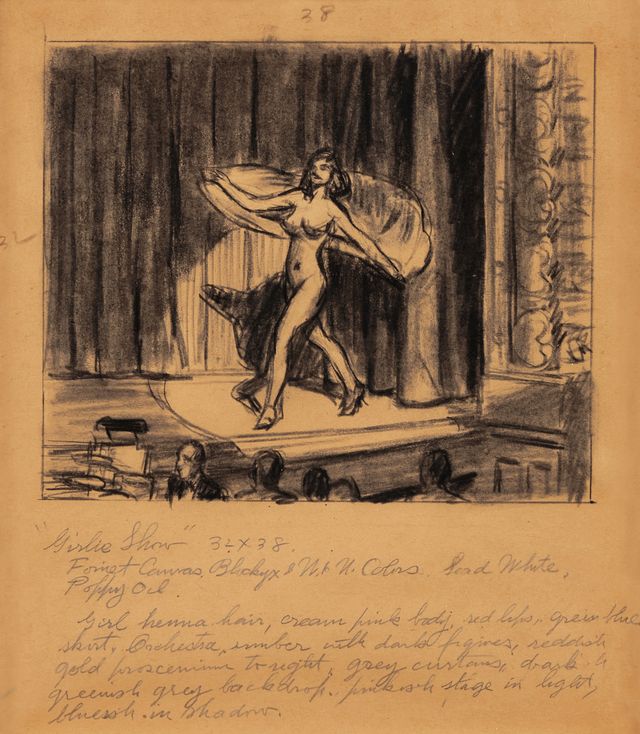 38
32
"Girlie Show" 32 X 38.
Foinet Canvas, Blockyx & W & N. Colors. Lead White,
Poppy Oil.
Girl henna hair, cream pink body, red lips, green blue
skirt, Orchestra, umber with dark figures, reddish
gold proscenium to right, grey curtains, dark
greenish grey backdrop. pinkish stage in light,
blueish in shadow.